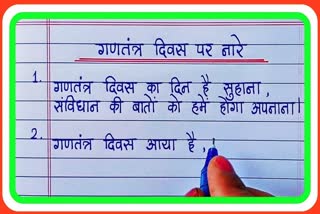 गणतंत्र दिवस पर नारे
1. गणतंत्र दिवस का दिन है सुहाना ,
संविधान की बातों को हमें होगा अपनाना।
2. गणतंत्र दिवस आया है ,